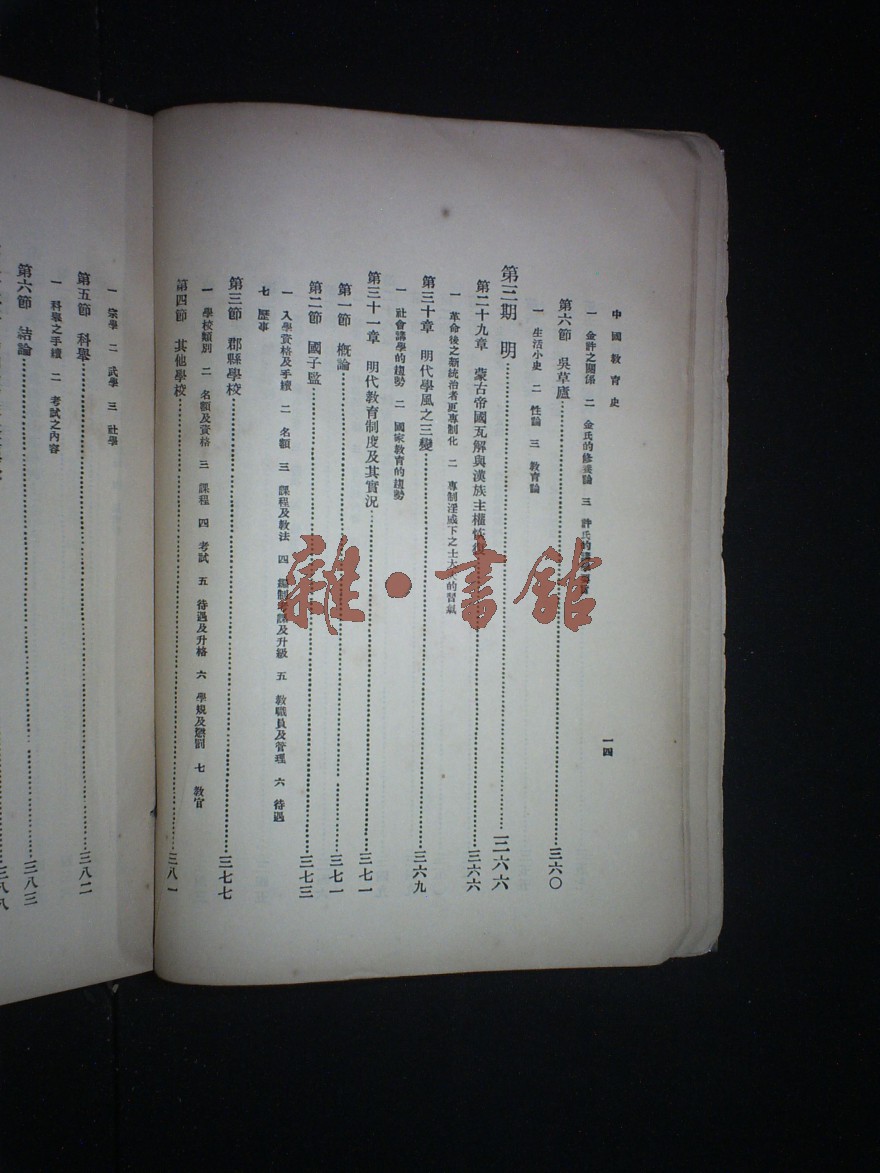 中國教育史
一四
一 金許之關係 二 金氏的修養論 三 許氏的
第六節 吳草廬……三六〇
一 生活小史 二 性論 三 教育論
第三期 明……三六六
第二十九章 蒙古帝國瓦解與漢族主權恢復……三六六
一 革命後之新統治者更專制化 二 專制淫威下之士大夫的習氣
第三十章 明代學風之三變……三六九
一 社會講學的趨勢 二 國家教育的趨勢
第三十一章 明代教育制度及其實況……三七一
第一節 概論……三七一
第二節 國子監……三七三
一 入學資格及手續 二 名額 三 課程及教法 四 編制及升級 五 教職員及管理 六 待遇
七 歷事
第三節 郡縣學校……三七七
一 學校類別 二 名額及資格 三 課程 四 考試 五 待遇及升格 六 學規及懲罰 七 教官
第四節 其他學校……三八一
一 宗學 二 武學 三 社學
第五節 科舉……三八二
一 科舉之手續 二 考試之內容
第六節 結論……三八三
三八八
雜·書館